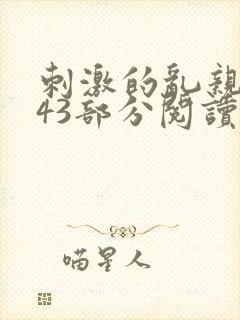 刺激的亂親
43部分閱讀
喵星人